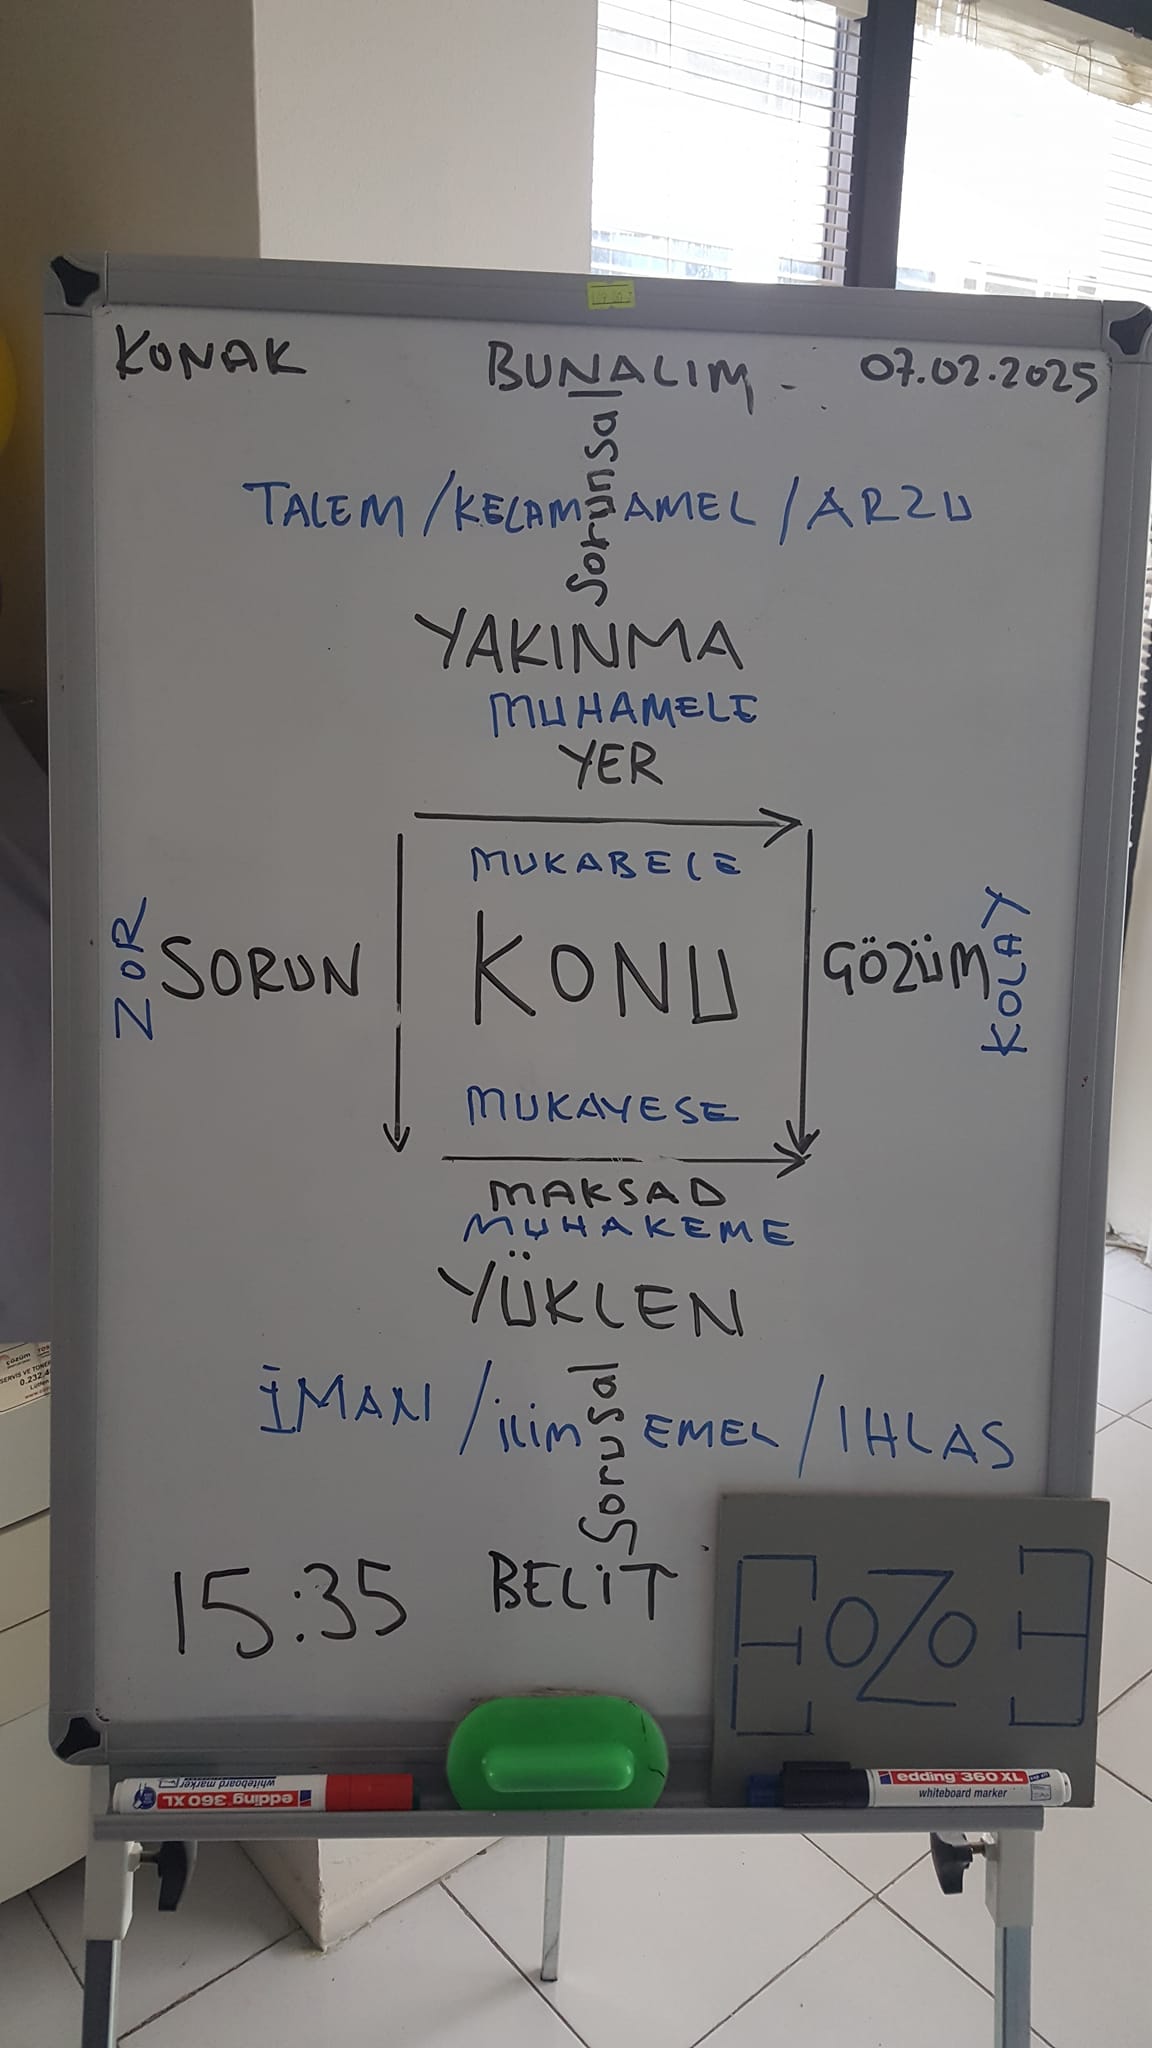 KONAK BUNALIM - 07.02.2025
Sorunsal
TALEM / KELAM AMEL / ARZU
YAKINMA
MUHAMELE
YER
MUKABELE
ZOR SORUN KONU ÇÖZÜM KOLAY
MUKAYESE
MAKSAD
MUHAKEME
YÜKLEN
İMAN / iLiM EMEL / IHLAS
Sorusal
15:35 BELiT
edding 360 XL
whiteboard marker
edding 360 XL
whiteboard marker
çözüm
SERVİS VE TONER
0.232.4